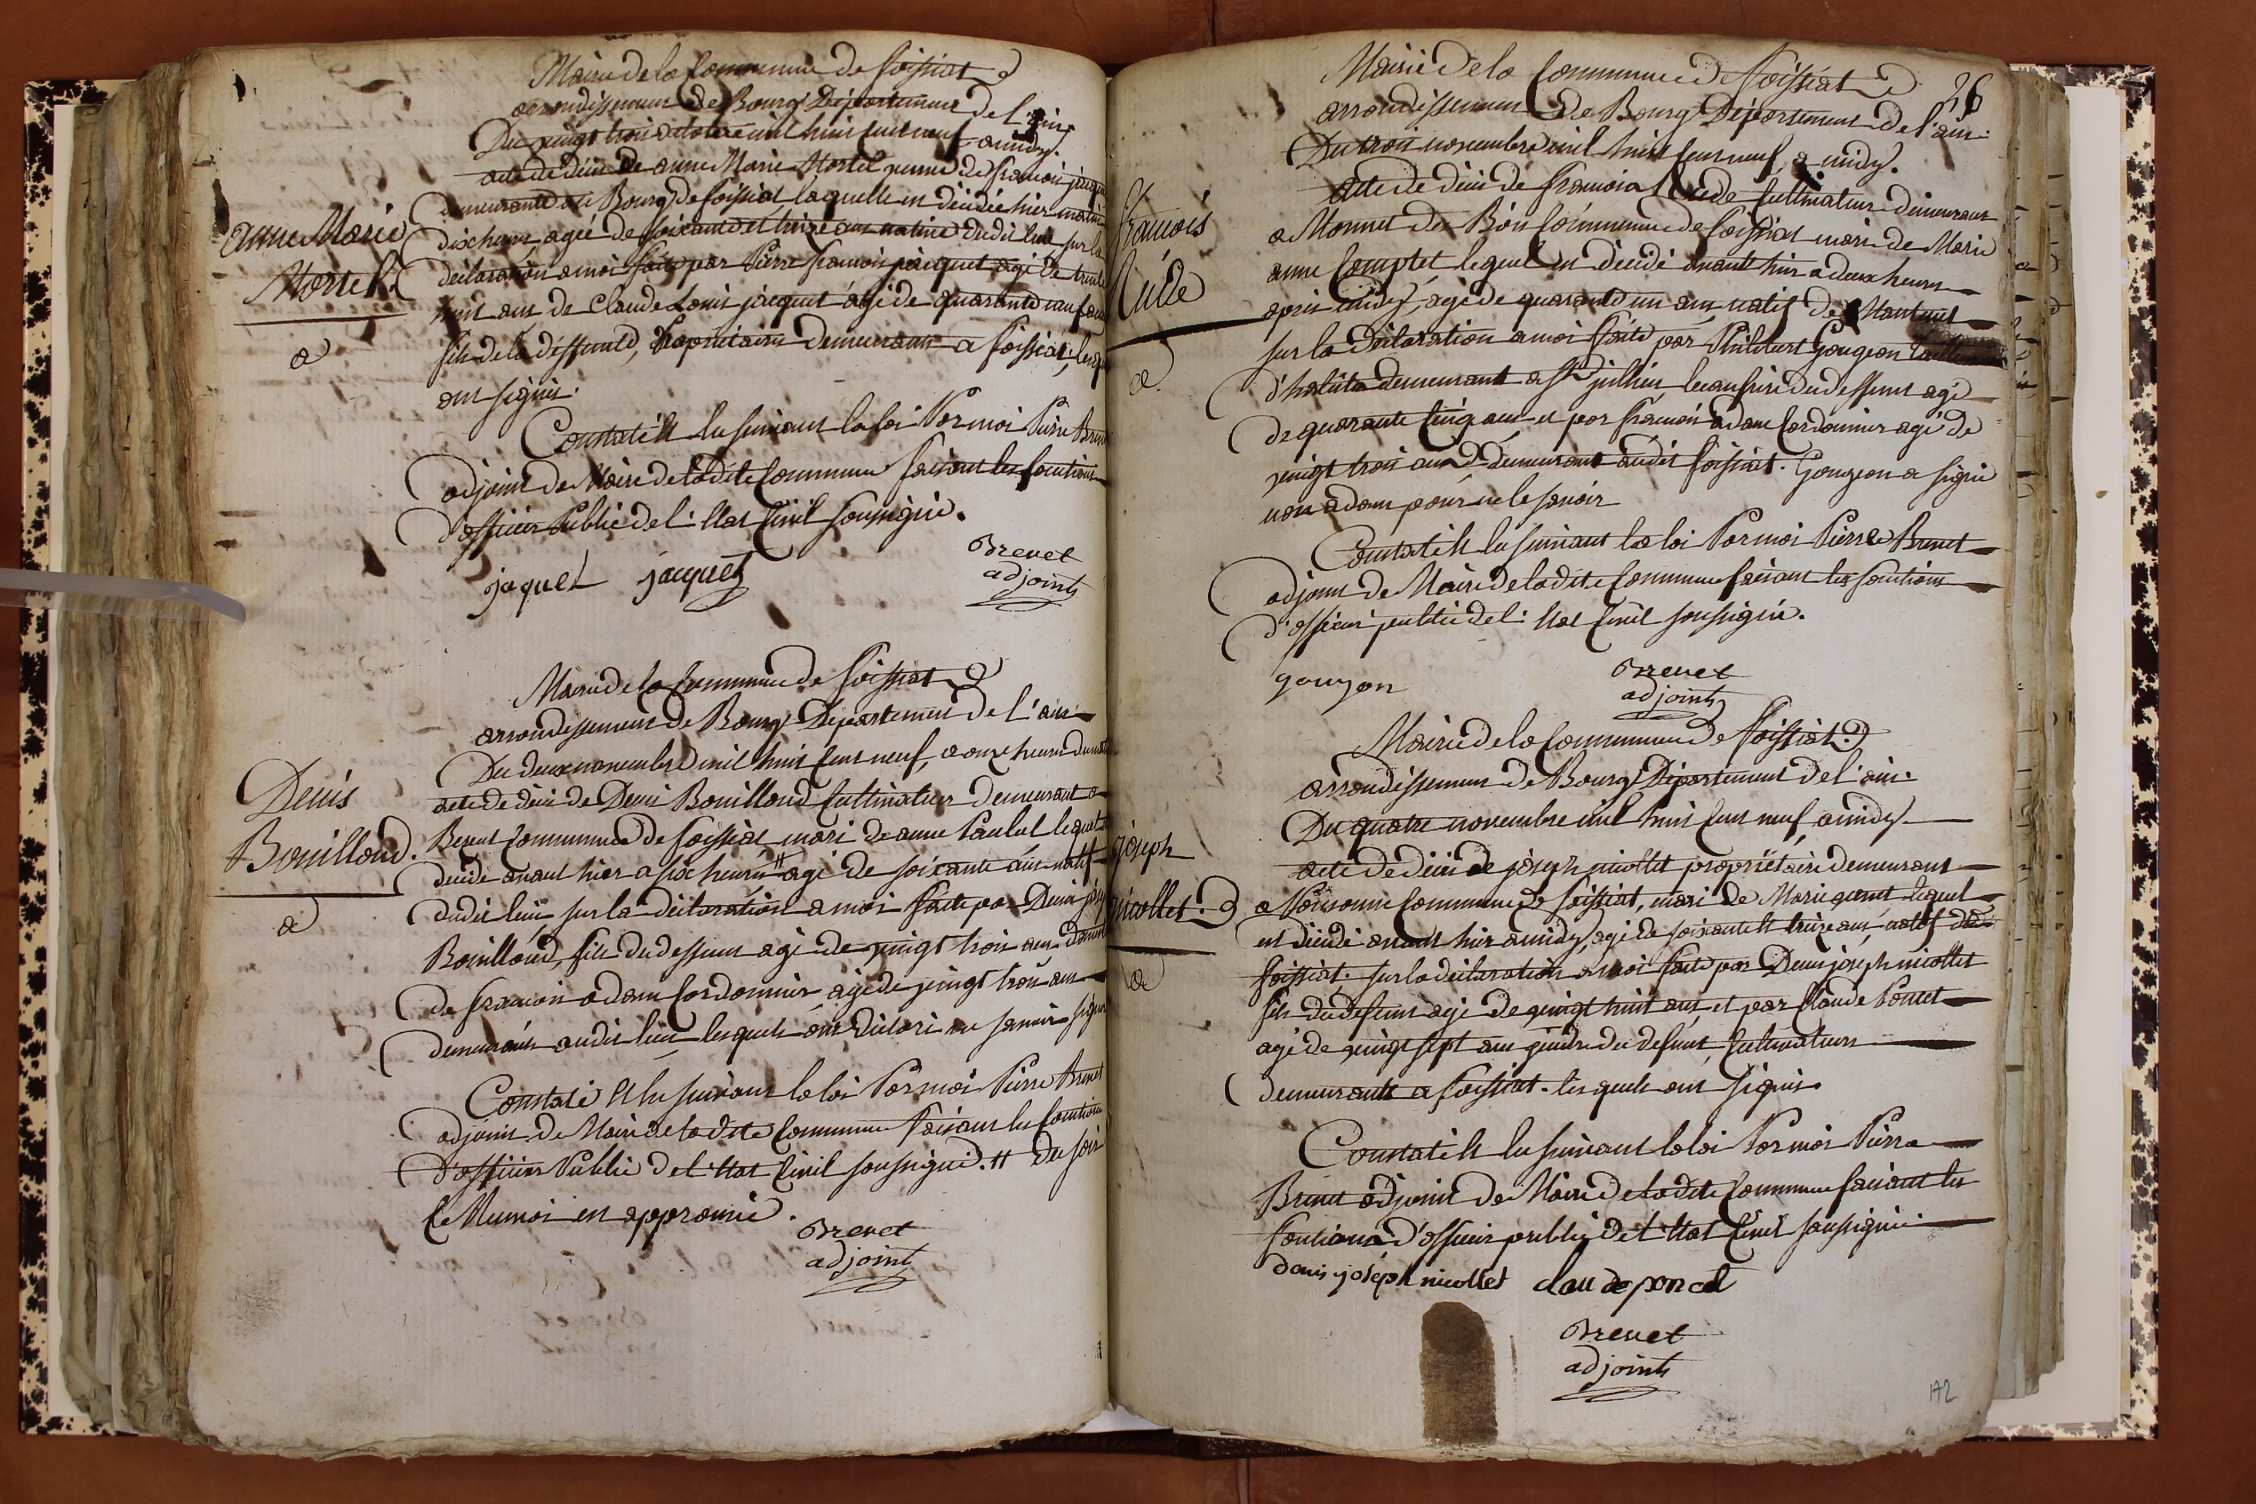 Mairie de la Commune de foissiat
arrondissement de Bourg Département de l'ain.
Du vingt trois octobre mil huit cent neuf a midy.
acte de décès de anne Marie Mortel veuve de françois jacquet
demeurante au Bourg de foissiat laquelle est décédée hier matin
dix heures, agée de soixante et treize ans native dudit lieu sur la
déclaration a moi faite par Pierre françois jacquet agé de trente
huit ans de Claude Louis jacquet agé de quarante neuf ans
fils de la deffunte, Propriétaires demeurants a foissiat, lesquels
ont signés.
Constaté et lu suivant la loi Par moi Pierre Brevet
adjoint de Maire de ladite Commune faisant les fonctions
d'officier Public de l'Etat Civil soussigné.
jaquet jacquet
Brevet
adjoint
anne Marie
Mortel
Mairie de la Commune de foissiat
arrondissement de Bourg Département de l'ain
Du deux novembre mil huit cent neuf, a onze heures du matin
acte de décès de Denis Bouilloud Cultivateur demeurant a
Bereut Commune de foissiat mari de anne Paulut lequel est
décédé avant hier a six heures # agé de soixante ans natif
dudit lieu, sur la déclaration a moi faite par Denis joseph
Bouilloud, fils du deffunt agé de vingt trois ans, demeurant
de francois adam Cordonnier agé de vingt trois ans
demeurants audit lieu lesquels ont déclaré ne savoir signer
Constaté et lu suivant la loi Par moi Pierre Brevet
adjoint de Maire de ladite Commune faisant les fonctions
d'officier Public de l'Etat Civil soussigné. # du soir
le Renvoi est approuvé.
Brevet
adjoint
Denis
Bouilloud.
26
Mairie de la Commune de foissiat
arrondissement de Bourg Département de l'ain.
Du trois novembre mil huit cent neuf, a midy.
acte de décès de francois Cultivateur demeurant
a Monnet du Bois Commune de foissiat mari de Marie
anne Comptet lequel est décédé avant hier a deux heures
après midy, agé de quarante un ans, natif de Mantenet
sur la déclaration a moi faite par Philibert Gougeon tailleur
d'habits demeurant a St julien beaufrère du deffunt agé
de quarante cinq ans et par francois adam Cordonnier agé de
vingt trois ans demeurant audit foissiat. Gougeon a signé
non adam pour ne le savoir
Constaté et lu suivant la loi Par moi Pierre Brevet
adjoint de Maire de ladite Commune faisant les fonctions
d'officier public de l'Etat Civil soussigné.
gougon
Brevet
adjoint
françois
Mairie de la Commune de foissiat
arrondissement de Bourg Département de l'ain.
Du quatre novembre mil huit cent neuf, a midy.
acte de décès de joseph nicollet propriétaire demeurant
a Commune de foissiat, mari de Marie lequel
est décédé avant hier a midy, agé de soixante et treize ans, natif de
foissiat. sur la déclaration a moi faite par Denis joseph nicollet
fils du defunt agé de vingt huit ans, et par Claude Poncet
agé de vingt sept ans gendre du defunt, Cultivateurs
demeurants a foissiat. lesquels ont signés.
Constaté et lu suivant la loi Par moi Pierre
Brevet adjoint de Maire de ladite Commune faisant les
fonctions d'officier public de l'Etat Civil soussigné.
denis joseph nicollet clau de poncet
Brevet
adjoint
joseph
nicollet.
172